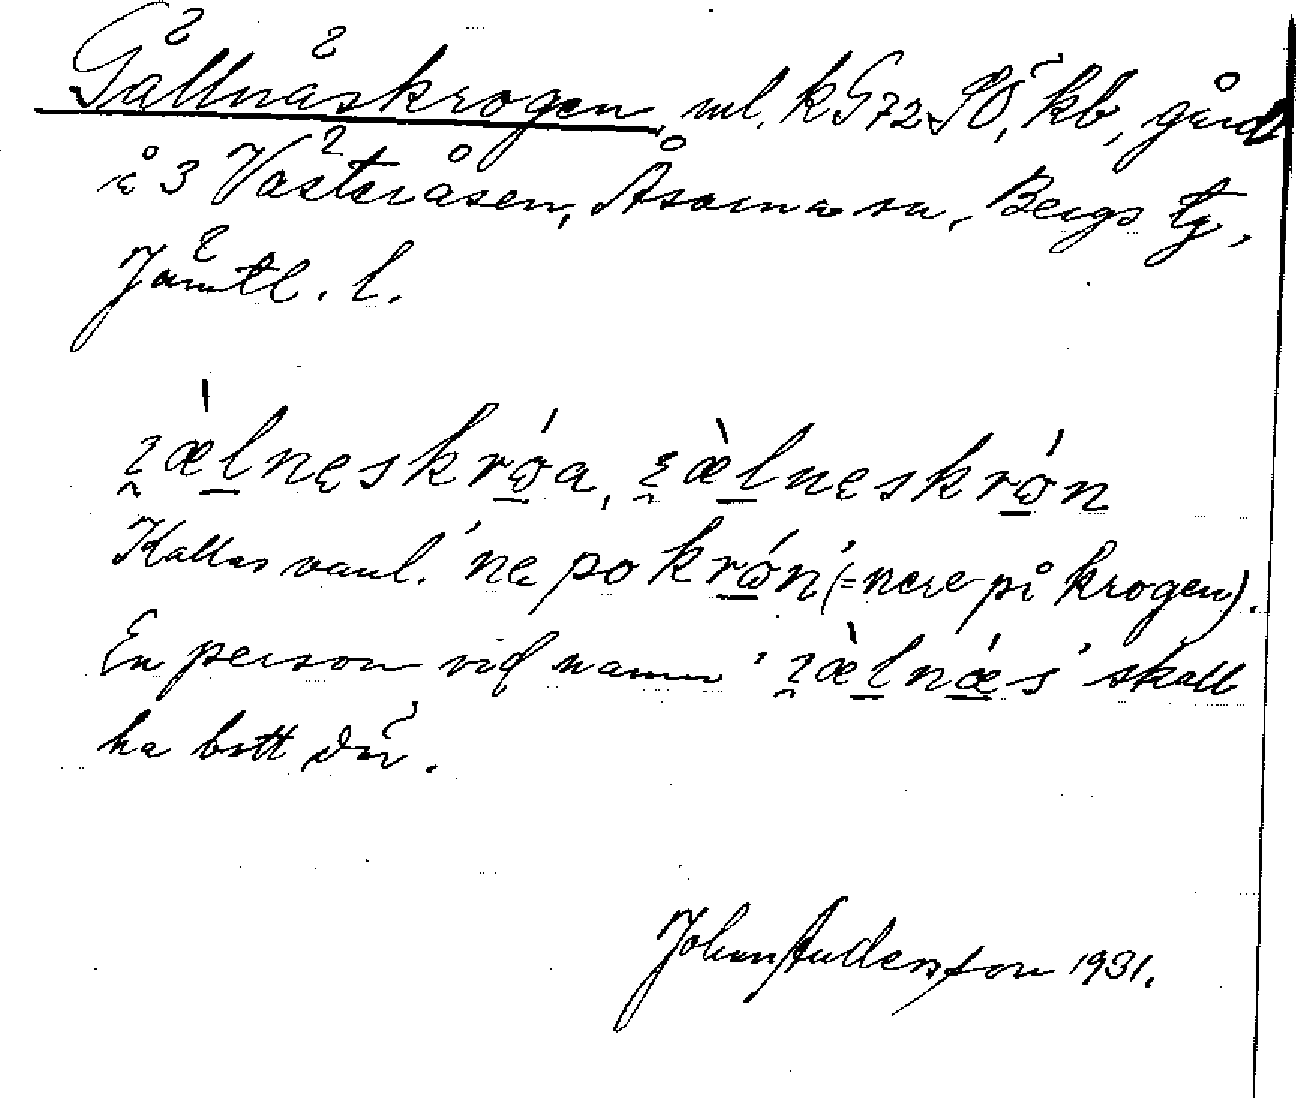 Gällnäskrogen, ml. kG72 SÖ, kb, gård
å 3 Västeråsen, Åsarna sn, Bergs tg,
Jämtl. l.
Kallas vanl. 'ne po krὼn' (= nere på krogen).
En person vid namn 'ʒæ̀lnæs' skall
ha bott där.
John Andersson 1931.